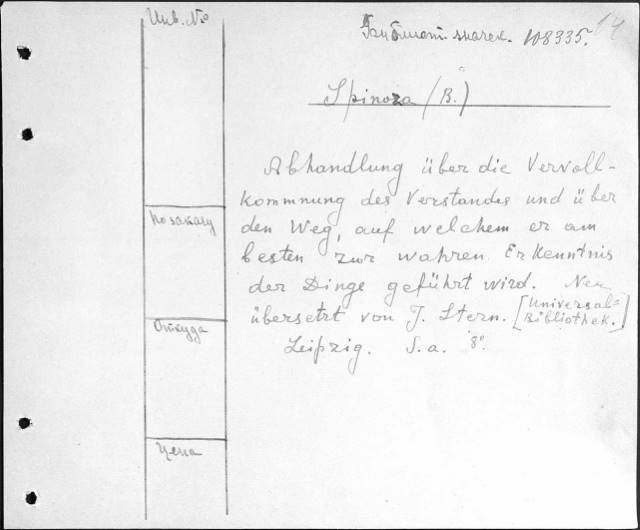 Инв. №
108335.
14
Spinoza (B.)
Abhandlung über die Vervoll-
kommnung des Verstandes und über
den Weg, auf welchem er am
besten zur wahren Erkenntnis
der Dinge geführt wird. Neu
übersetzt von J. Stern. [Universal-
Bibliothek.]
Leipzig. S.a. 8°.
По заказу
Откуда
Цена